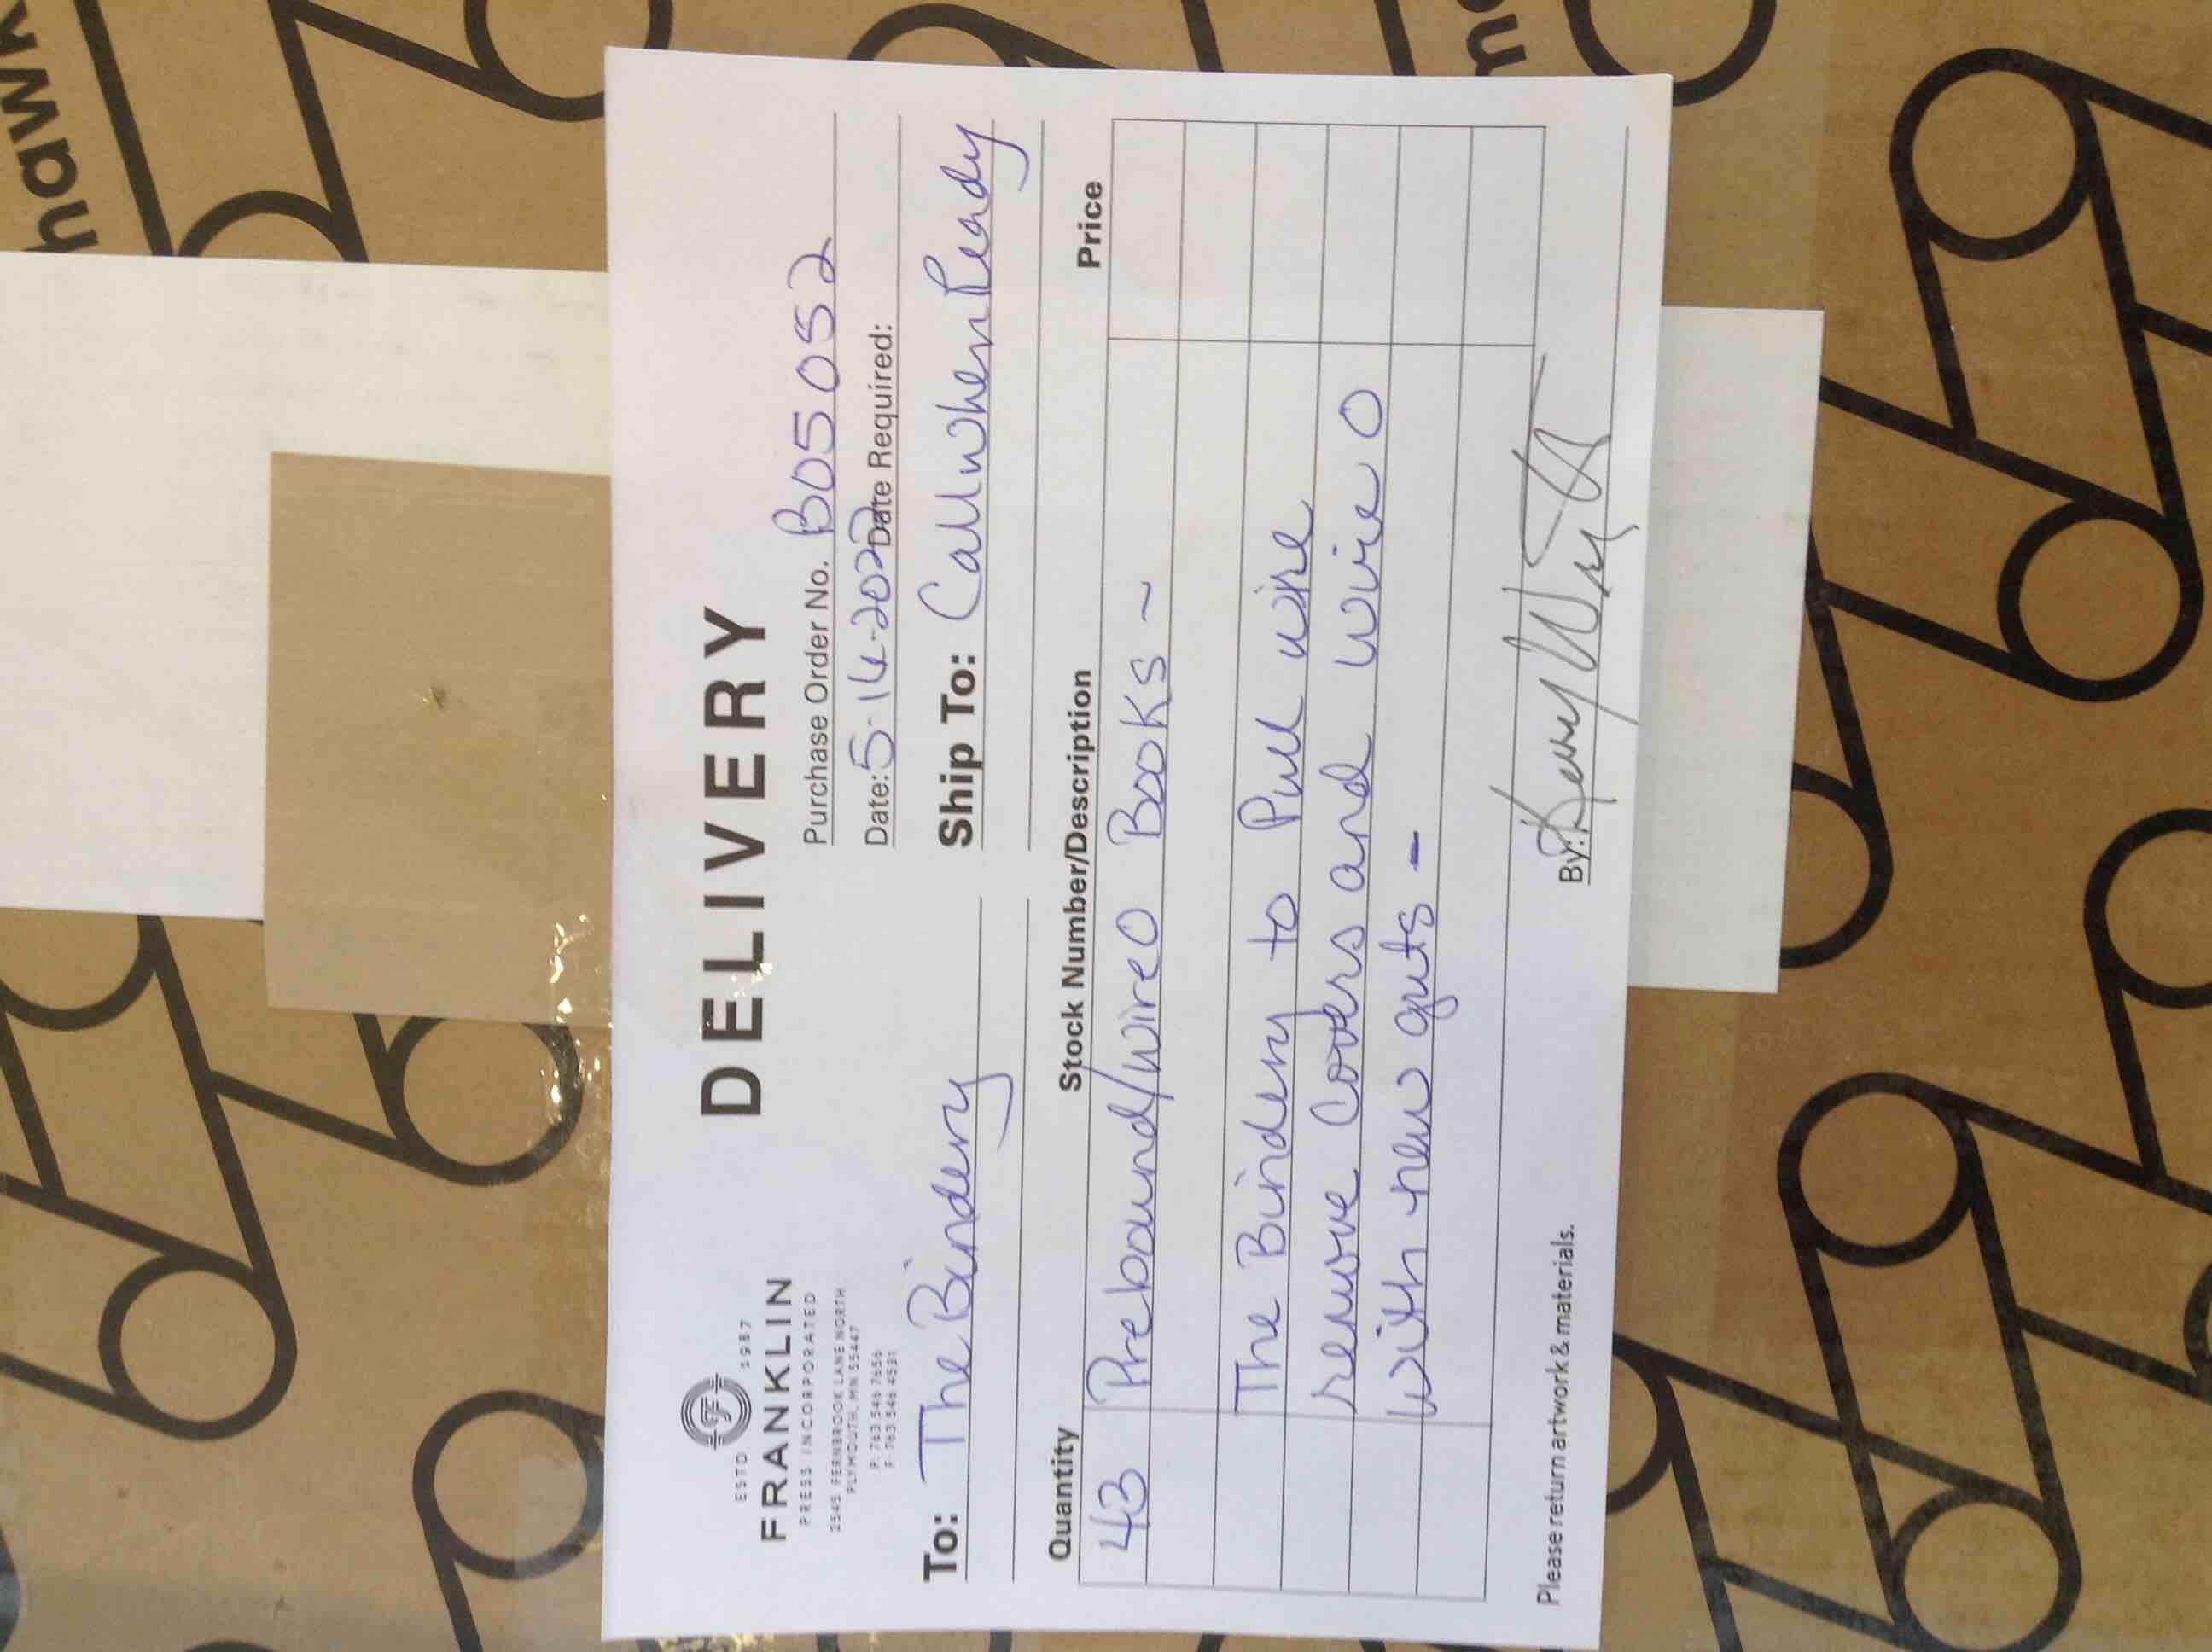 hawk
DELIVERY
ESTD 1987
FRANKLIN
PRESS INCORPORATED
2545 FERNBROOK LANE NORTH
PLYMOUTH, MN 55447
P: 763 546 7656
F: 763 546 4531
Purchase Order No. B05052
Date: 5-16-2022 Date Required:
To: The Bindery
Ship To: Call when Ready
Quantity Stock Number/Description Price
43 Prebound/wireO Books ~
The Bindery to Pull wire
remove Covers and wire O
with new guts -
Please return artwork & materials.
By: Kerry